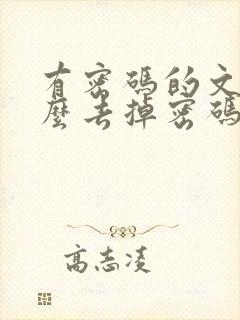 有密碼的文
麼去掉密碼
高志凌